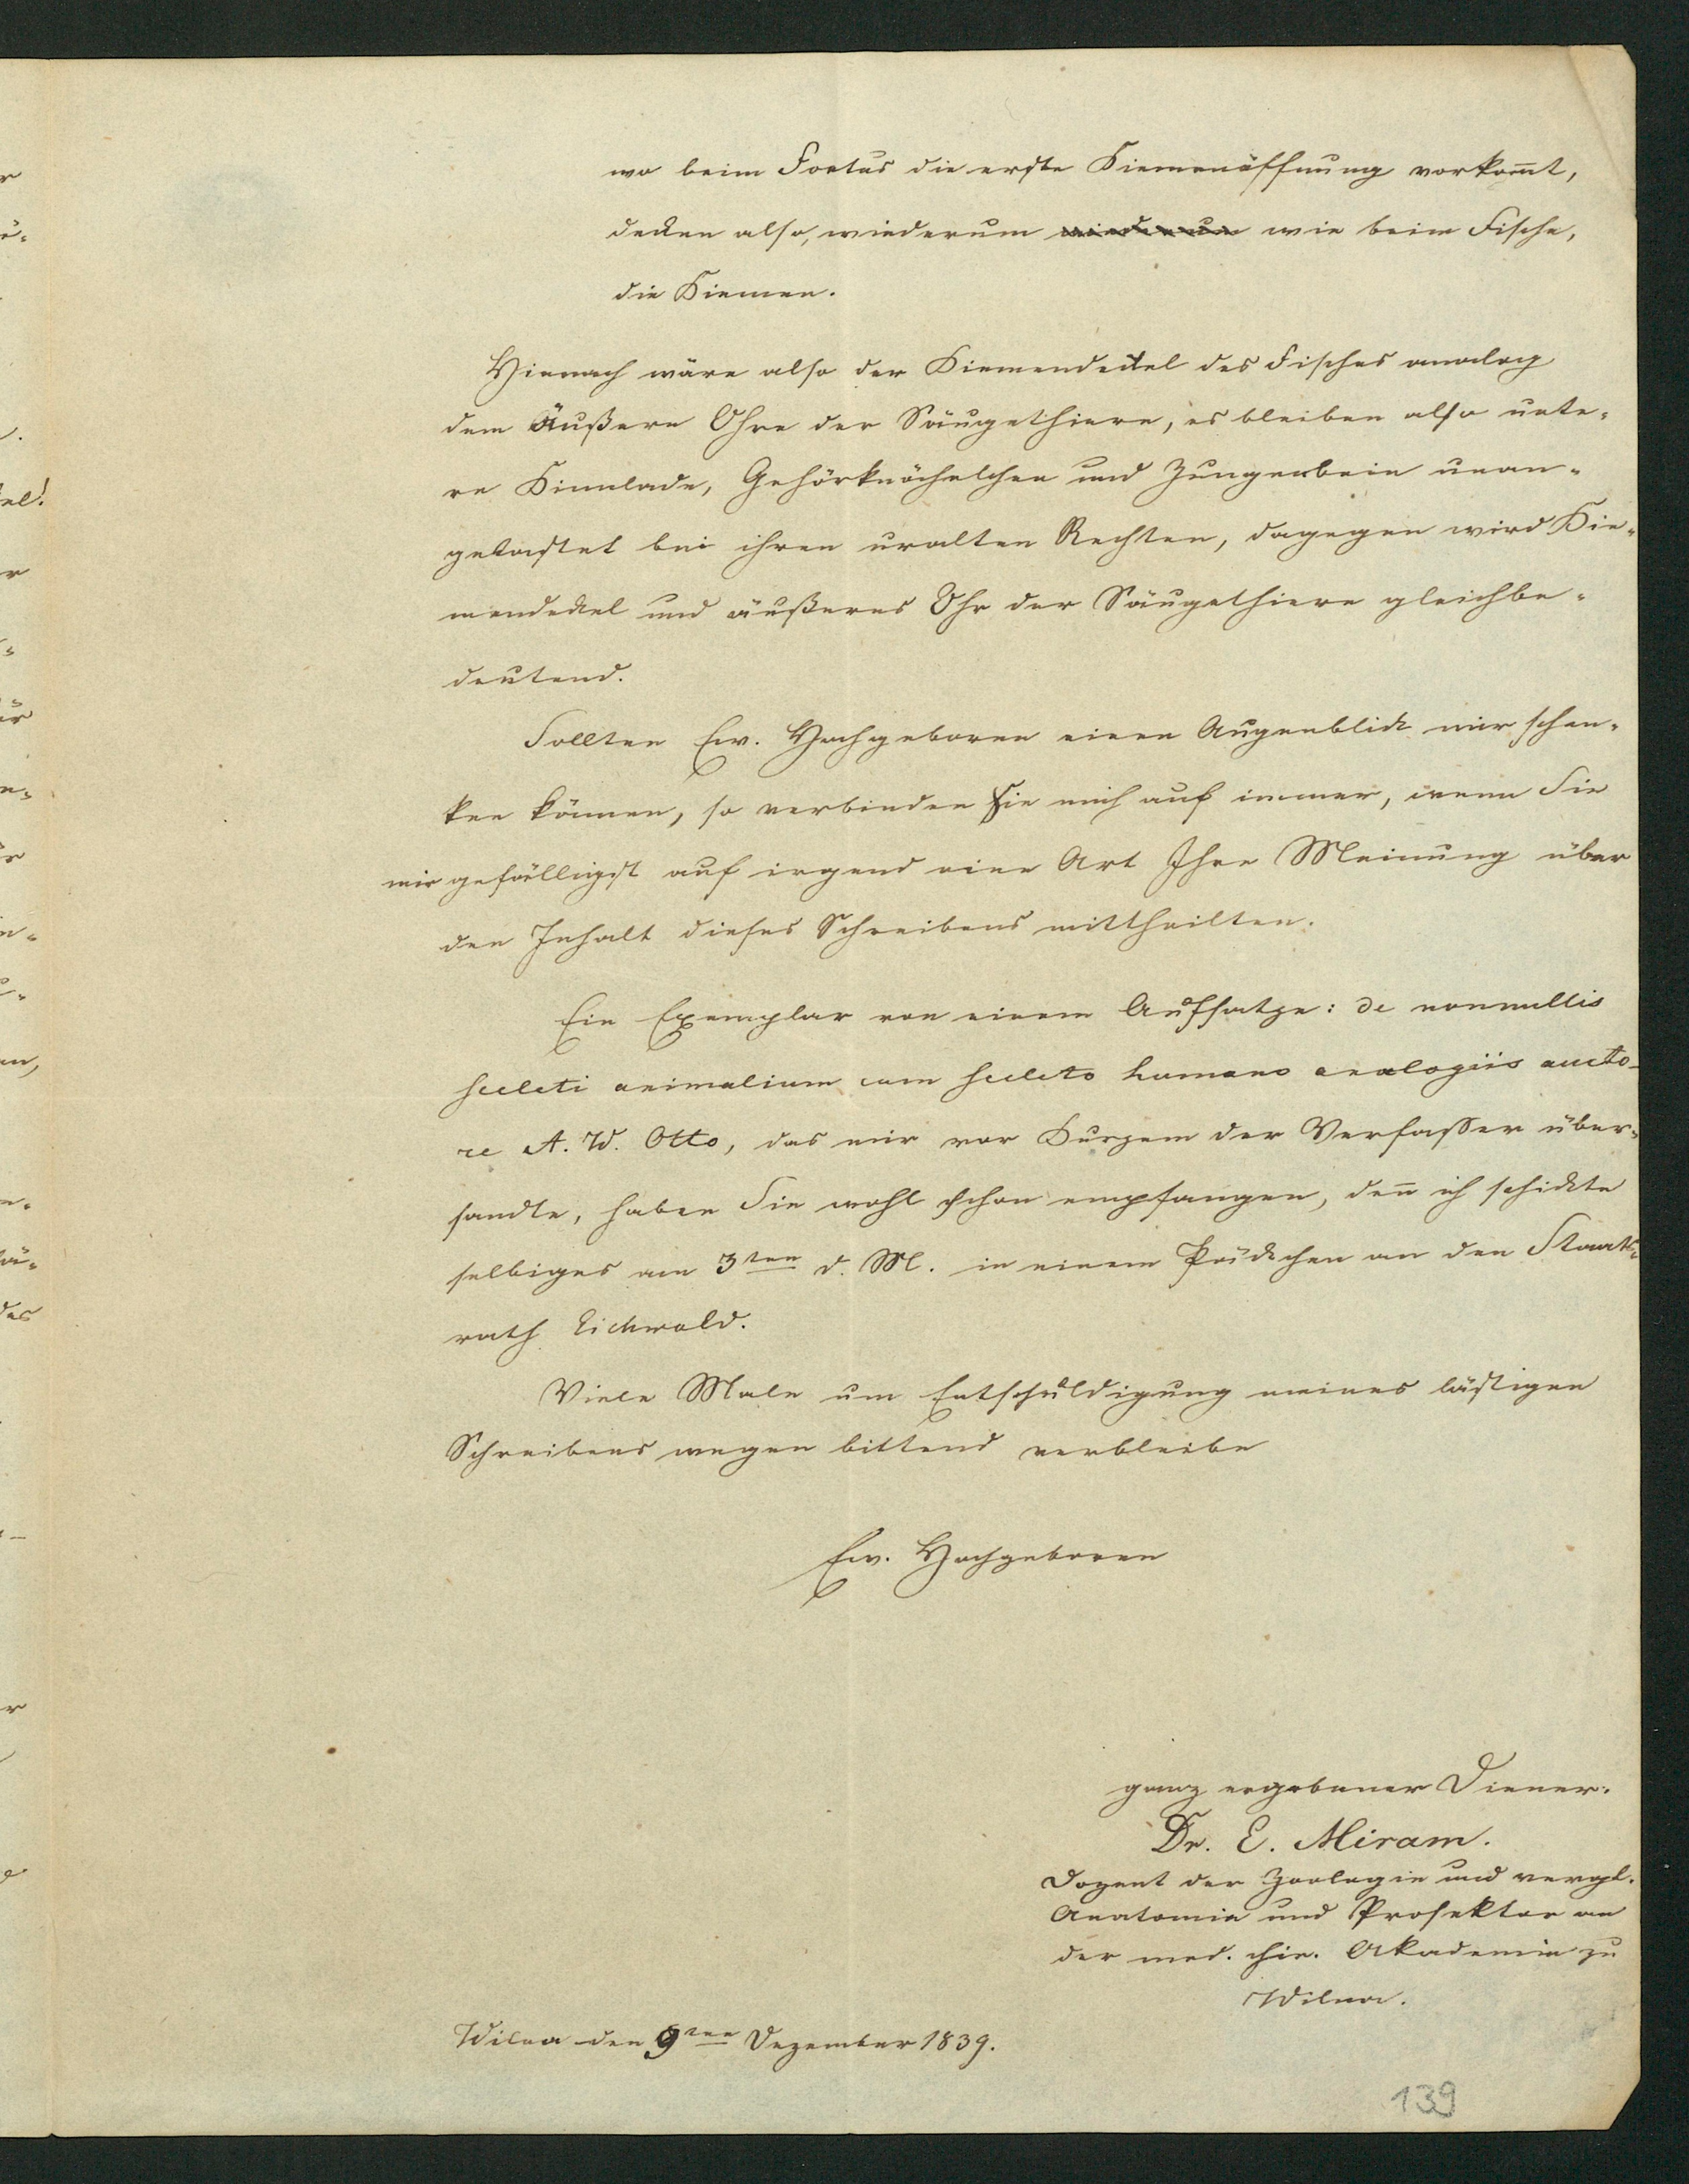 wo beim Foetus die erste Kiemenöffnung vorkom̄t,
decken also, wiederum wiederum wie beim Fische,
die Kiemen.
Hienach wäre also der Kiemendeckel des Fisches analog
dem Äußern Ohre der Säugethiere, es bleiben also unte-
re Kinnlade, Gehörknöchelchen und Zungenbein unan-
getastet bei ihren uralten Rechten, dagegen wird Kie-
mendeckel und äußeres Ohr der Säugethiere gleichbe-
deutend.
Sollten Ew. Hochgeboren einen Augenblick mir schen-
ken können, so verbinden Sie mich auf immer, wenn Sie
mir gefälligst auf irgend eine Art Ihre Meinung über
den Inhalt dieses Schreibens mittheilten.
Ein Exemplar von einem Aufsatze: de nonnullis
sceleti animalium cum sceleto humano analogiis aucto-
re A. W. Otto, das mir vor Kurzem der Verfasser über-
sandte, haben Sie wohl schon empfangen, den̄ ich schickte
selbiges am 3ten d. M. in einem Päckchen an den Staats-
rath Eichwald.
Viele Male um Entschuldigung meines lästigen
Schreibens wegen bittend verbleibe
Ew. Hochgeboren
ganz ergebener Diener.
Dr. E. Miram.
Dozent der Zoologie und vergl.
Anatomie und Prosektor an
der med. chir. Akademie zu
Wilna.
Wilna den 9ten Dezember 1839.
139